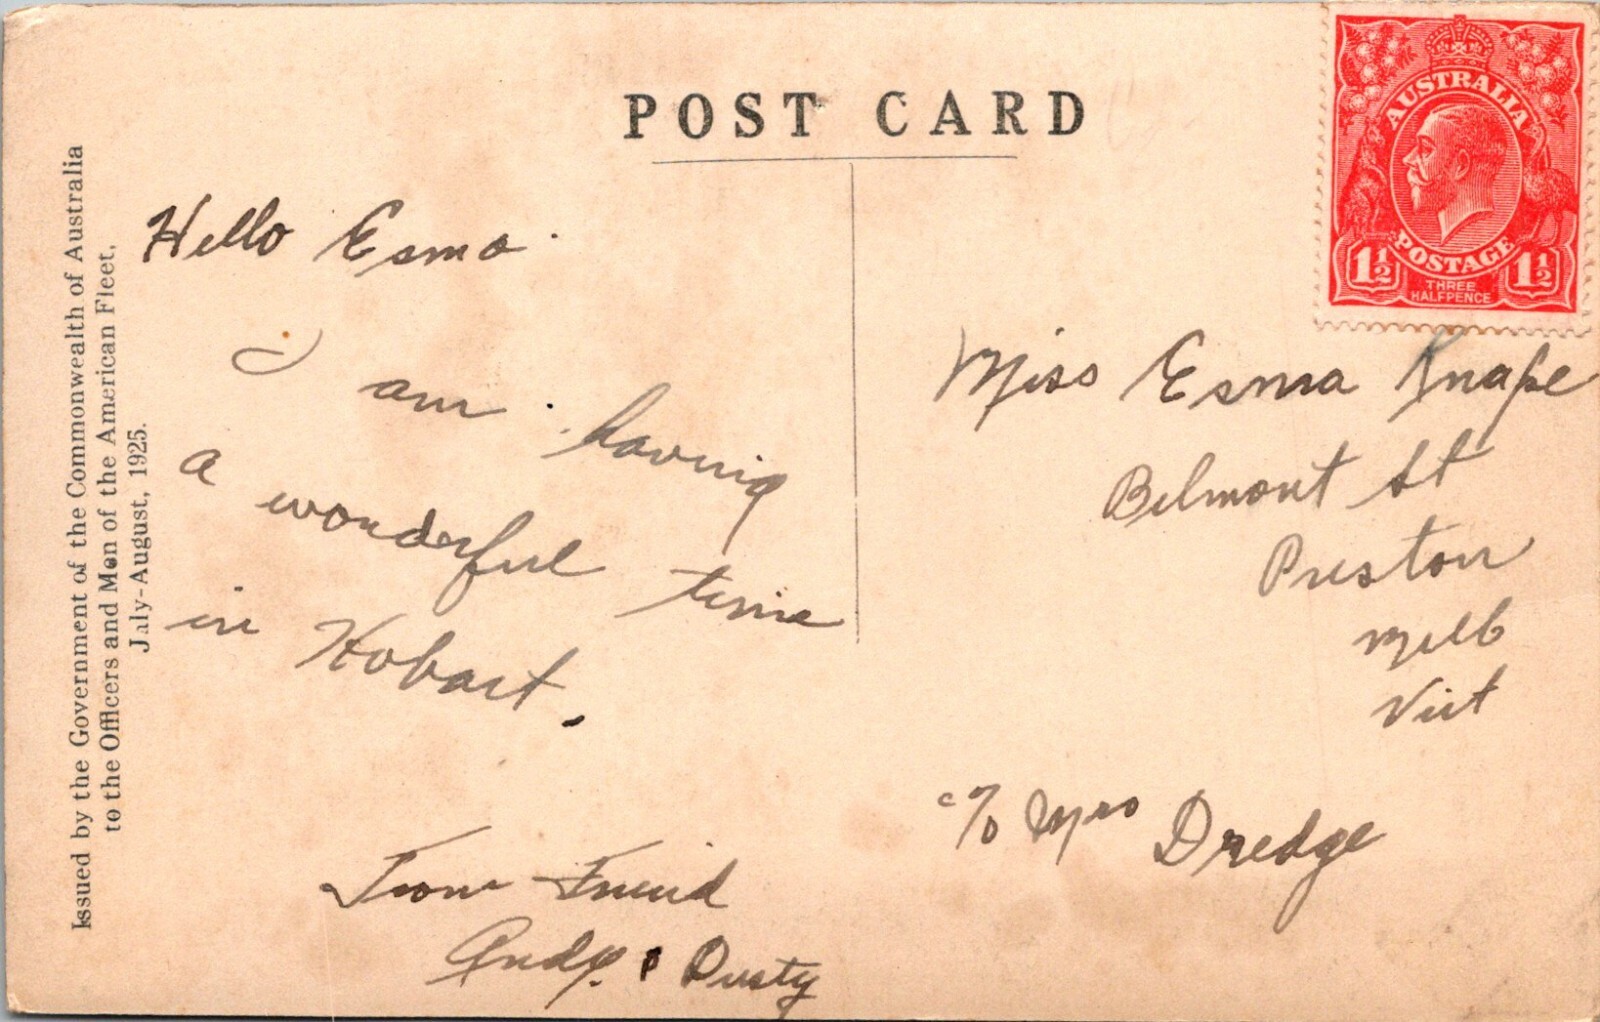 POST CARD
Issued by the Government of the Commonwealth of Australia
to the Officers and Men of the American Fleet,
July-August, 1925.
AUSTRALIA
POSTAGE
1½ 1½
THREE
HALFPENCE
Hello Esma
I am having
a wonderful time
in Hobart.
From Friend
Andy. & Dusty
Miss Esma Knape
Belmont St
Preston
Melb
Vict
c/o Mrs Dredge